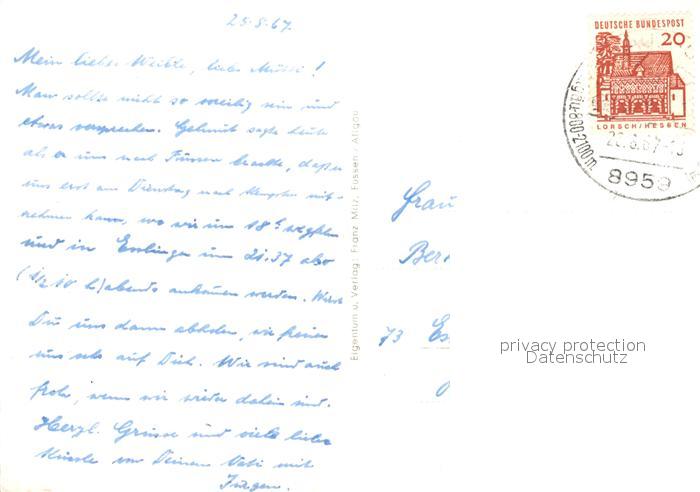 25.8.67.
Mein liebes Weible, liebe Mutti!
Man sollte nicht so voreilig sein und
etwas versprechen. Helmut sagte heute
als er uns nach Füssen brachte, daß er
uns erst am Dienstag nach Kempten mit-
nehmen kann, wo wir um 18 h wegfahren
und in Esslingen um 21.37 also
(1/2 10 h) abends ankommen werden. Wirst
Du uns dann abholen, wir freuen
uns sehr auf Dich. Wir sind auch
froh, wenn wir wieder daheim sind.
Herzl. Grüsse und viele liebe
Küssle von Deinem Vati mit
Jürgen.
Eigentum u. Verlag: Franz Milz, Füssen / Allgäu
DEUTSCHE BUNDESPOST
20
LORSCH/HESSEN
800-2100 m
8959
Frau
Ber
73 Es
privacy protection
Datenschutz